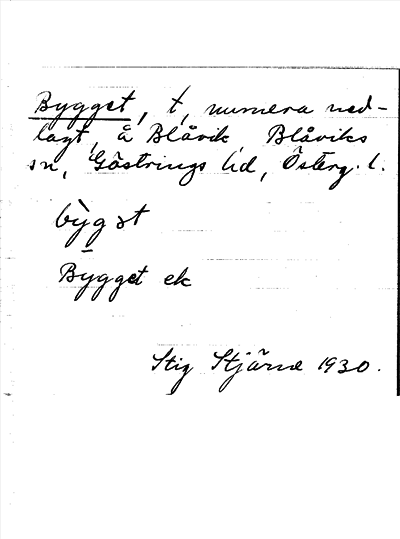 Bygget, t, numera ned-
lagt, å Blåvik, Blåviks
sn, Göstrings hd, Österg. l.
bỳgət
Bygget ek
Stig Stjärne 1930.